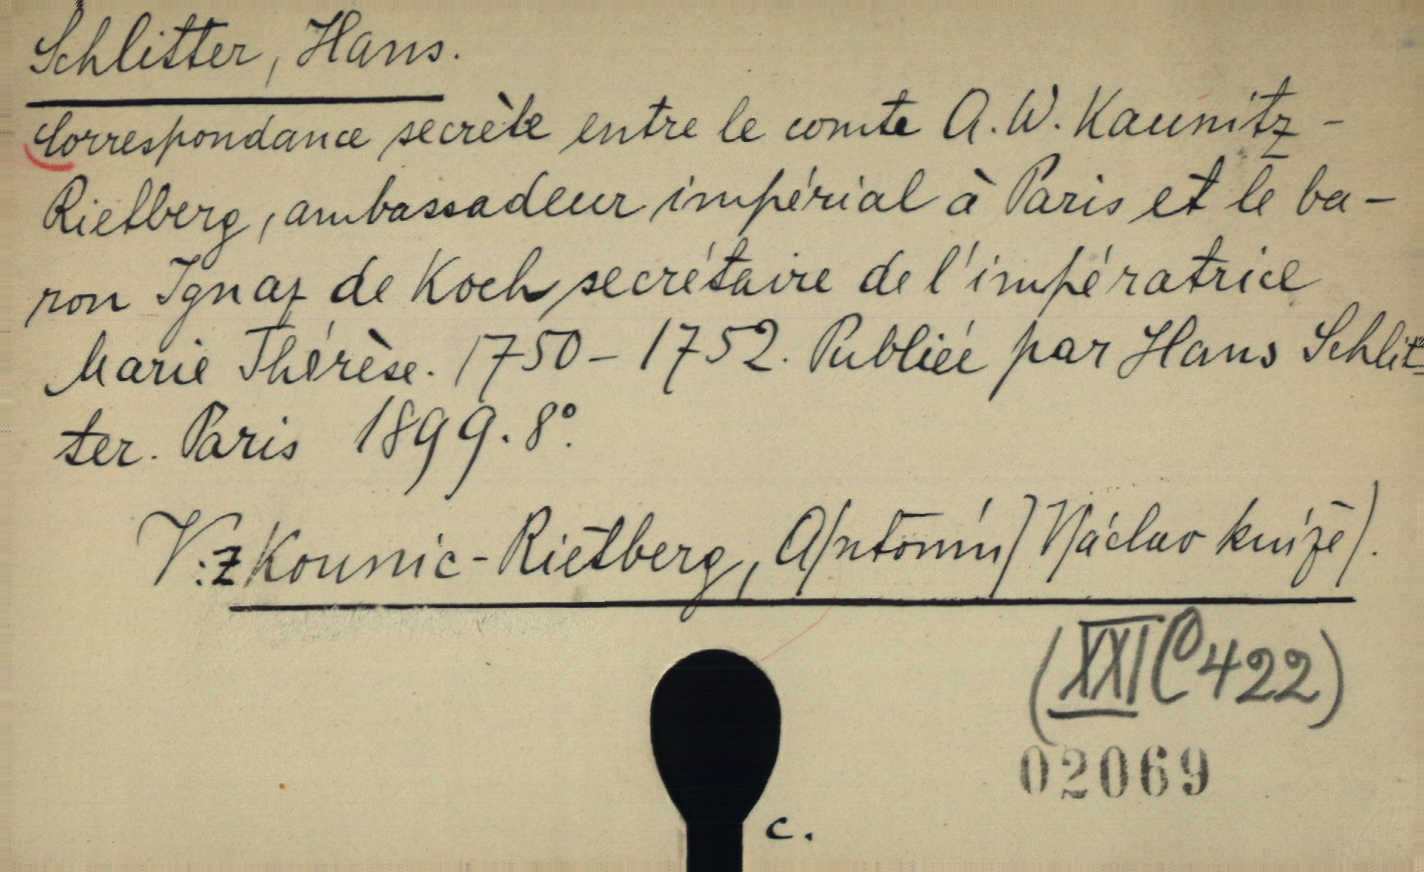 Schlitter, Hans.
Correspondance secrète entre le comte A. W. Kaunitz-
Rietberg, ambassadeur impérial à Paris et le ba-
ron Ignaz de Koch secrétaire de l'impératrice
Marie Thérèse. 1750-1752. Publiée par Hans Schlit-
ter. Paris 1899. 8°.
V: z Kounic-Rietberg, A/ntonín/ Václav kníže/.
(XXI C 422)
02069
c.